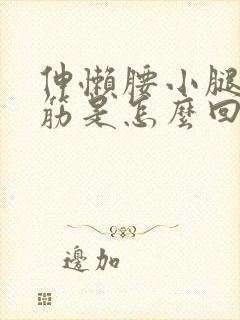 伸懒腰小腿
筋是怎麼回
邊加